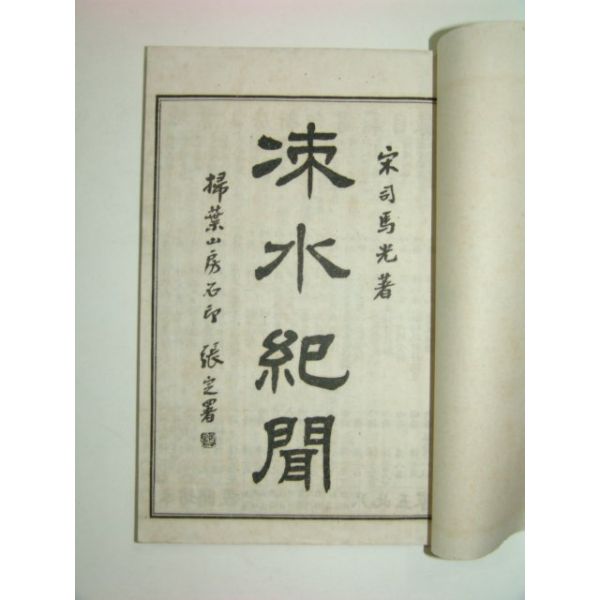 宋司馬光著
涑水紀聞
掃葉山房石印 張定署